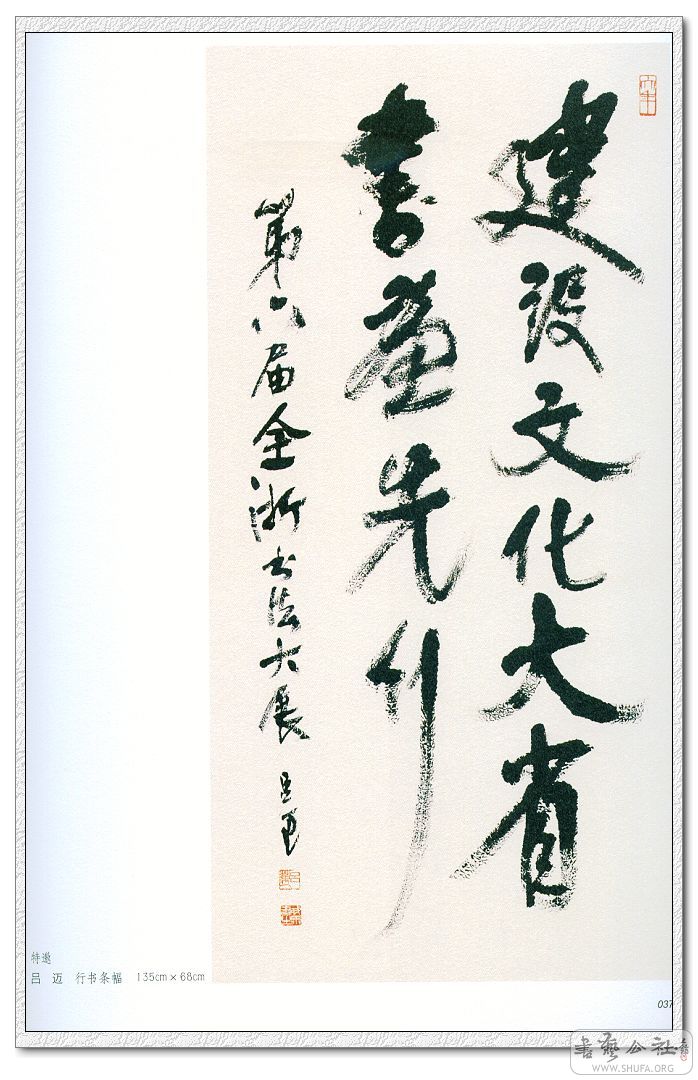 建设文化大省
书画先行
第六届全浙书法大展 吕迈
特邀
吕 迈 行书条幅 135cm×68cm
037
书艺公社
WWW.SHUFA.ORG